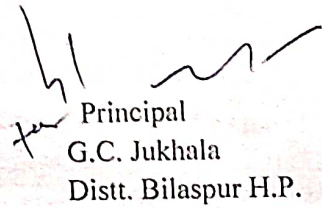 Principal
G.C. Jukhala
Distt. Bilaspur H.P.